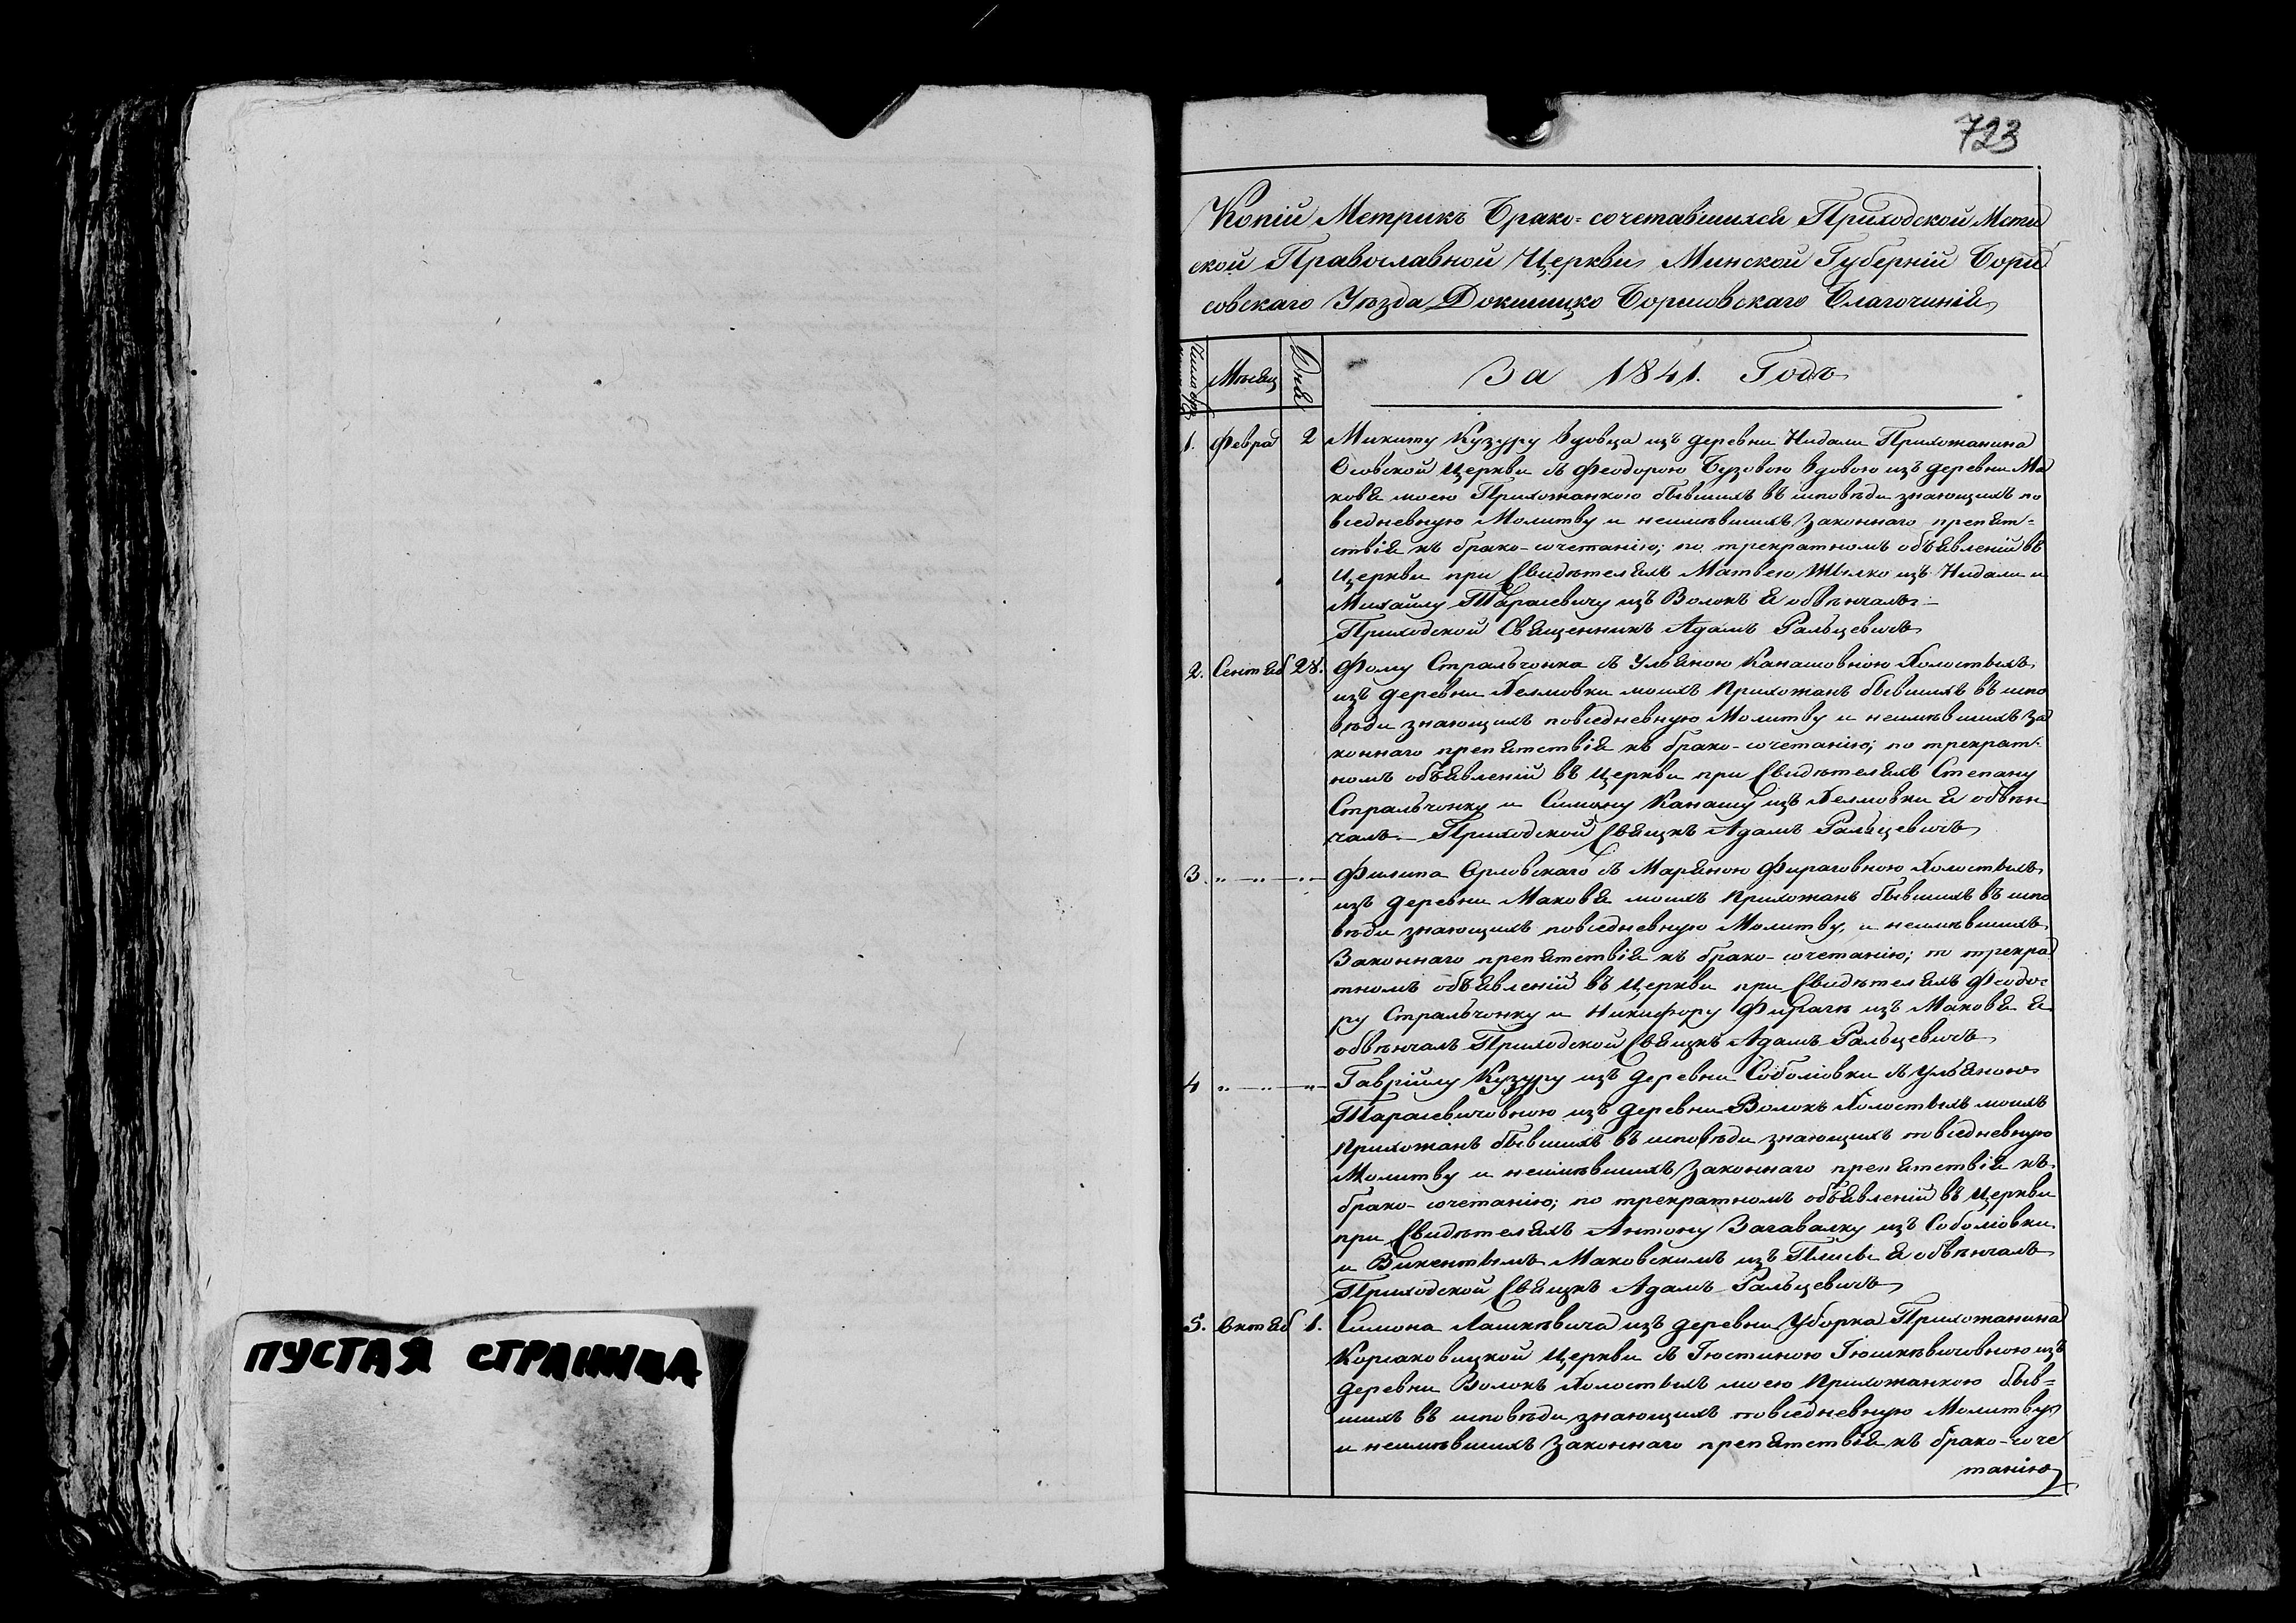 ПУСТАЯ СТРАНИЦА
723
Копіи Метрикъ Брако=сочетавшихся Приходской Мсти
ской Православной Церкви Минской Губерніи Бори
совскаго Уѣзда Докшицко Борисовскаго Благочинія
Мѣсяц
Дня
За 1841. Годъ
1. Февра 2 Микиту Кузуру вдовца изъ деревни Нидали Прихожанина
Осовской Церкви съ Феодорою Бузовою вдовою изъ деревни Ма
ковя моею Прихожанкою бывшихъ въ исповѣди знающихъ по
вседневную Молитву и неимѣвшихъ Законнаго препят=
ствія къ брако-сочетанію; по трекратномъ объявленіи въ
Церкви при Свидѣтеляхъ Матвею Жилко изъ Нидали и
Михайлу Тарасевичу изъ Волокъ я обвѣнчалъ:
Приходской Священникъ Адамъ Ральцевичъ
2. Сентяб 28. Фому Стральчонка съ Ульяною Канашовною Холостыхъ
изъ деревни Хелмовки моихъ Прихожанъ бывшихъ въ испо
вѣди знающихъ повседневную Молитву и неимѣвшихъ За
коннаго препятствія къ брако-сочетанію; по трекрат=
номъ объявленіи въ Церкви при Свидѣтеляхъ Степану
Стральчонку и Симону Канашу изъ Хелмовки я обвѣн
чалъ. Приходской Свящкъ Адамъ Ральцевичъ
3. „ — „ — „ — Филипа Орловскаго съ Маряною Фираговною Холостыхъ
изъ деревни Маковя моихъ Прихожанъ бывшихъ въ испо
вѣди знающихъ повседневную Молитву, и неимѣвшихъ
Законнаго препятствія къ брако-сочетанію; по трекра
тномъ объявленіи въ Церкви при Свидѣтеляхъ Феодо=
ру Стральчонку и Никифору Фирагѣ изъ Маковя я
обвѣнчалъ Приходской Свящкъ Адамъ Ральцевичъ
4 „ — „ — „ — Гавріилу Кузуру изъ деревни Соболювки съ Ульяною
Тарасевичовною изъ деревни Волокъ Холостыхъ моихъ
Прихожанъ бывшихъ въ исповѣди знающихъ повседневную
Молитву и неимѣвшихъ Законнаго препятствія къ
брако-сочетанію; по трекратномъ объявленіи въ Церкви
при Свидѣтеляхъ Антону Загавалку изъ Соболювки
и Викентымъ Маковскимъ изъ я обвѣнчалъ
Приходской Свящкъ Адамъ Ральцевичъ
5. Октяб 1. Симона Лашкѣвича изъ деревни Уборка Прихожанина
Корсаковицкой Церкви съ Іюстиною Іюшкѣвичовною изъ
деревни Волокъ Холостыхъ моею Прихожанкою быв=
шихъ въ исповѣди знающихъ повседневную Молитву
и неимѣвшихъ Законнаго препятствія къ брако-соче
танію